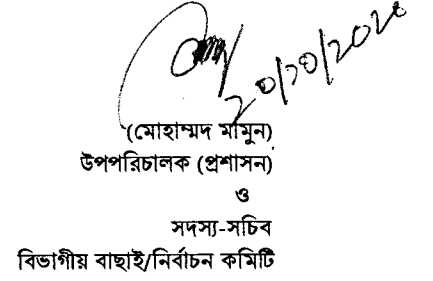 ২০/১০/২০২০
(মোহাম্মদ মামুন)
উপপরিচালক (প্রশাসন)
ও
সদস্য-সচিব
বিভাগীয় বাছাই/নির্বাচন কমিটি